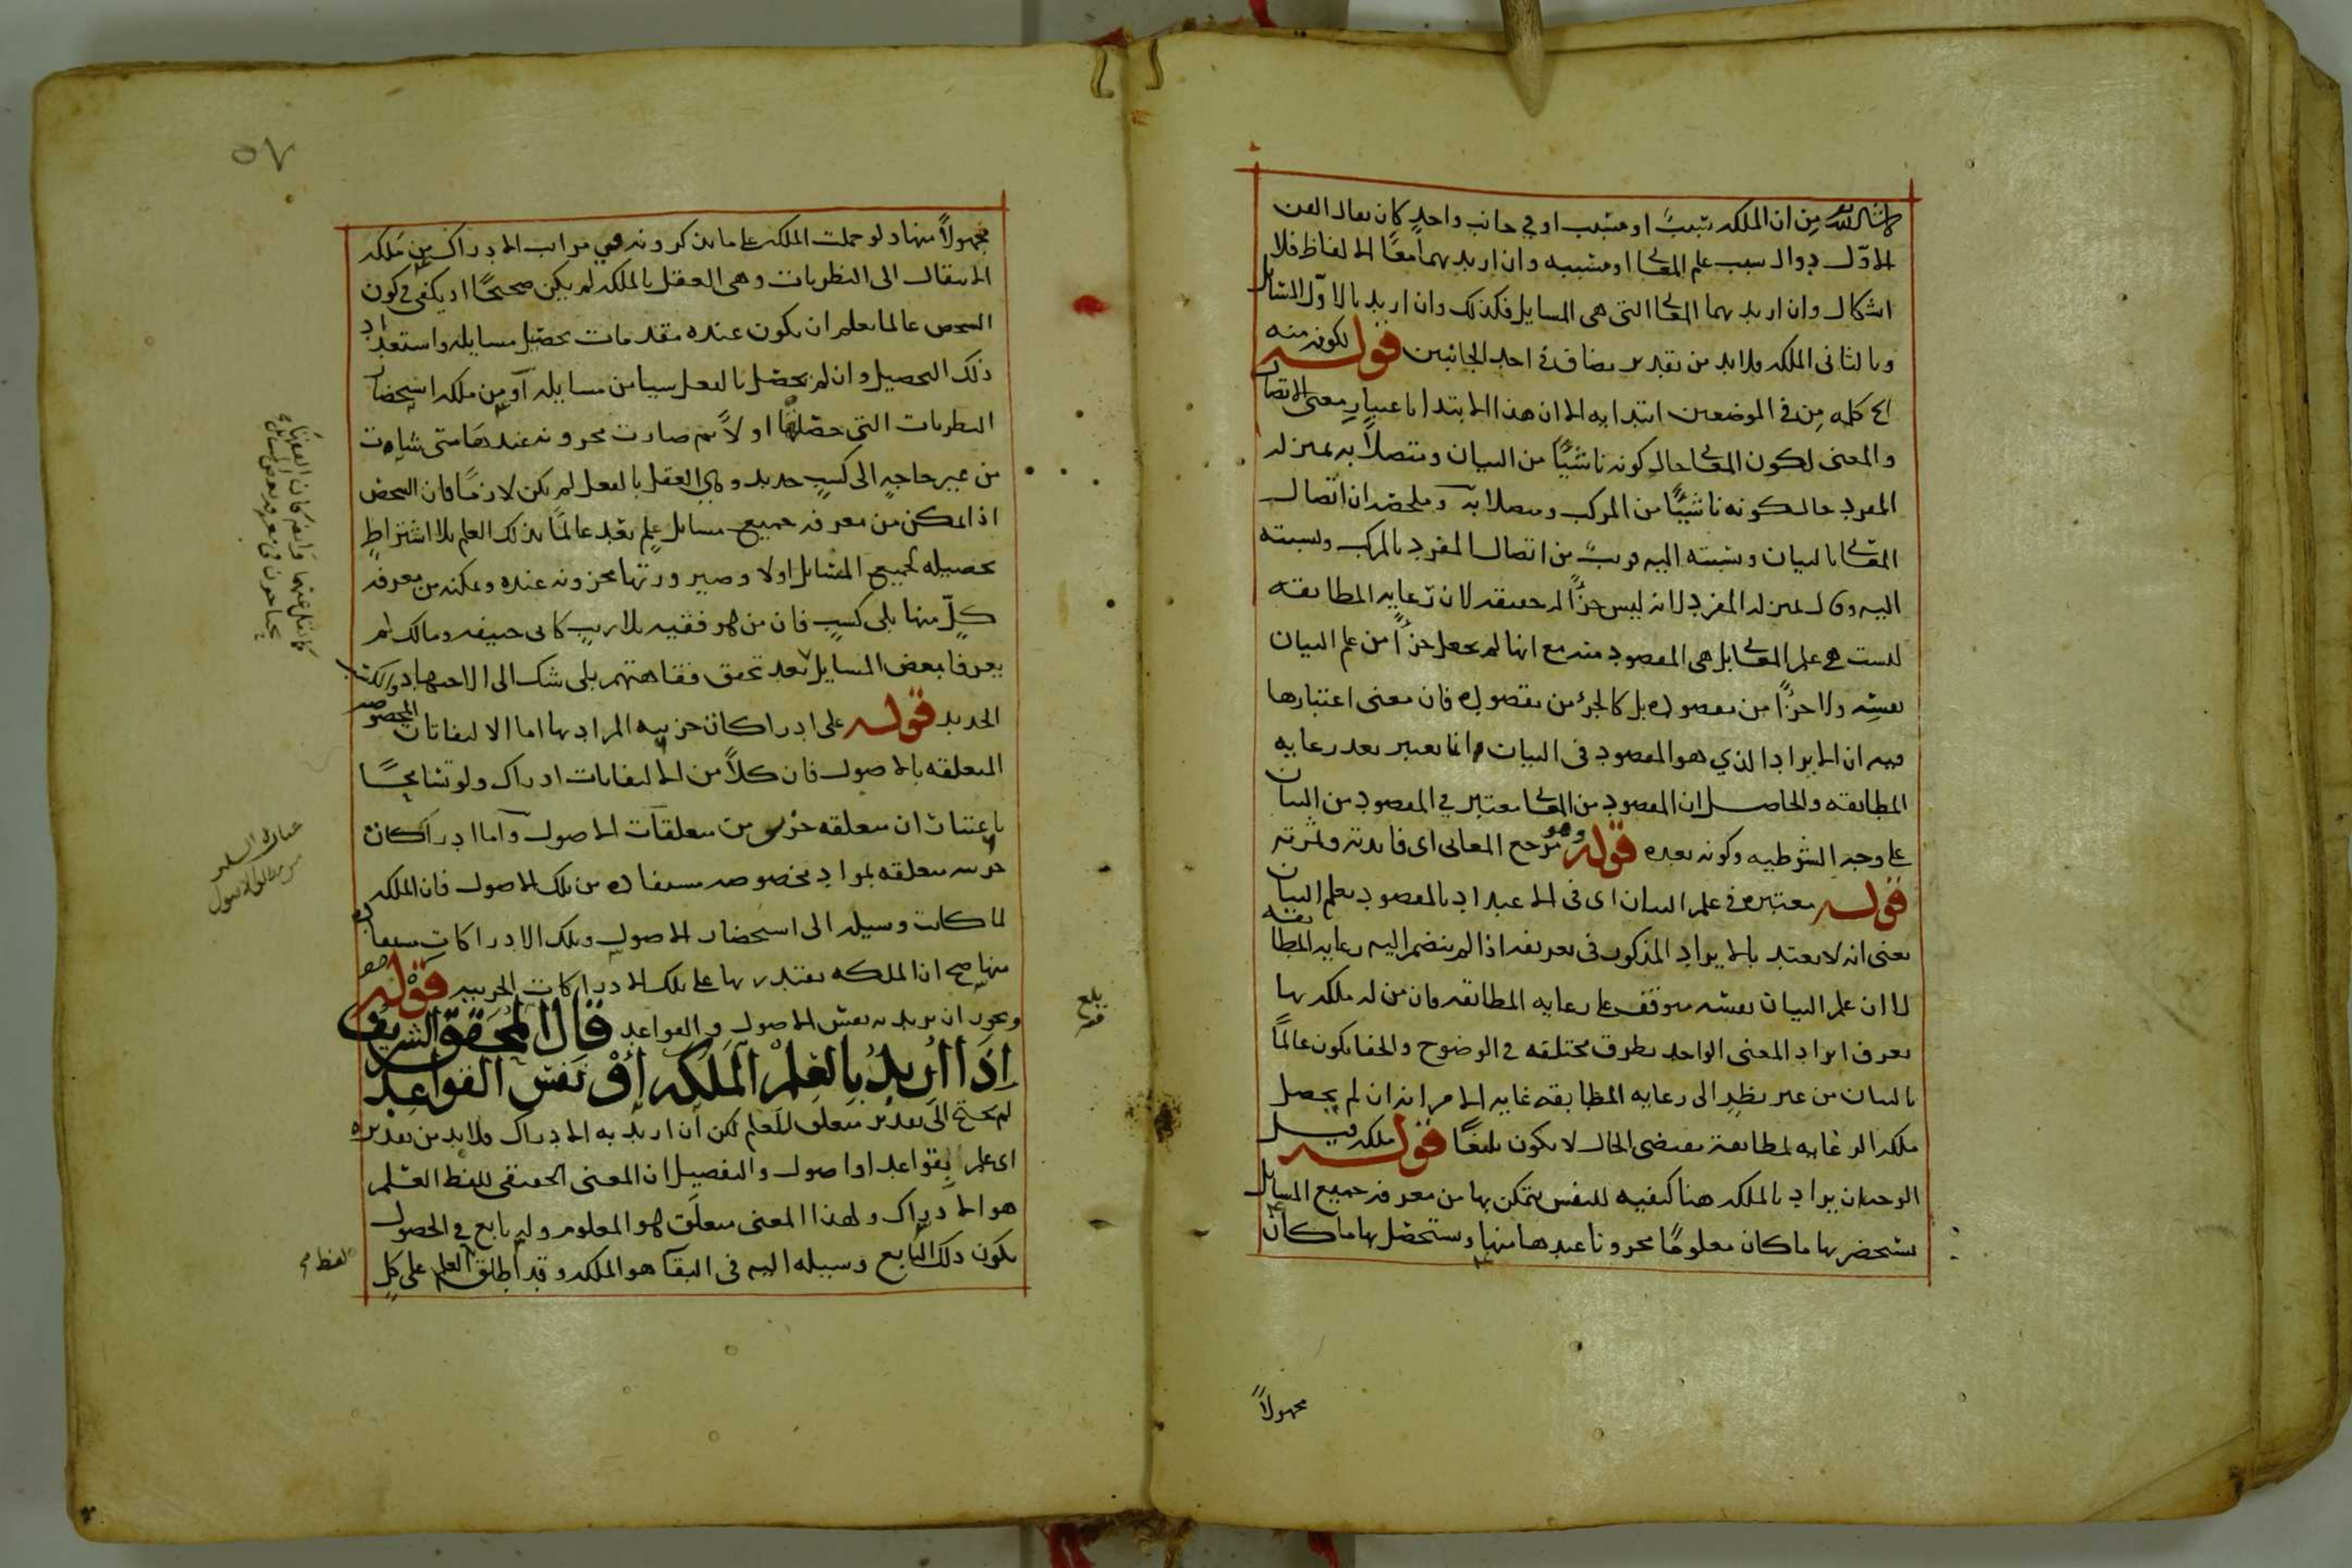 من ان الملكه سبب او مسبب او في جانب واحد كان يقال الفن
الاول دوال سبب علم المعانى او مسببه وان اريد بهما معا الالفاظ فلا
اشكال وان اريد بهما المعانى التى هى المسايل فكذلك وان اريد بالاول المسايل
وبالثانى الملكه فلا بد من تقدير مضاف فى احد الجانبين قوله لكونه منه
كلمه من فى الموضعين ابتدايه الا ان هذا الابتدا باعتبار معنى الاتصال
والمعنى لكون المعانى حال كونه ناشيًا من البيان ومتصلاً به بمنزله
المفرد حال كونه ناشيًا من المركب ومتصلا به وملخصه ان اتصال
المعانى بالبيان ونسبته اليه قريب من اتصال المفرد بالمركب ونسبته
اليه وقال بمنزله المفرد لانه ليس جزًا له حقيقه لان رعايه المطابقه
ليست هى علم المعانى بل هى المقصود منه مع انها لم يجعل جزًا من علم البيان
نفسه ولا جزًا من مقصوده بل كالجزء من مقصوده فان معنى اعتبارها
فيه ان الايراد الذي هو المقصود فى البيان انما يعتبر بعد رعايه
المطابقه والحاصل ان المقصود من المعانى معتبر في المقصود من البيان
على وجه الشرطيه وكونه بعده قوله وهو مرجع المعانى اى فايدته وثمرته
قوله معتبره فى علم البيان اى فى الاعتداد بالمقصود بعلم البيان
يعنى انه لا يعتد بالايراد المذكور فى تعريفه اذا لم ينضم اليه رعايه المطابقه
لا ان علم البيان نفسه متوقف على رعايه المطابقه فان من له ملكه بها
يعرف ايراد المعنى الواحد بطرق مختلفه في الوضوح والخفا يكون عالمًا
بالبيان من غير نظر الى رعايه المطابقه غايه الامر انه ان لم يحصل
ملكه الرعايه لمطابقة مقتضى الحال لا يكون بليغًا قوله ملكه قيل
الوجه ان يراد بالملكه هنا كيفيه للنفس يتمكن بها من معرفه جميع المسايل
يستحضر بها ما كان معلومًا مخزونا عندها منها ويستحصل بها ما كان
مجهولاً
٥٧
مجهولاً منها ولو حملت الملكه على ما يذكرونه في مراتب الادراك من ملكه
الانتقال الى النظريات وهى العقل بالملكه لم يكن صحيحًا اذ يكفى فى كون
الشخص عالما بعلم ان يكون عنده مقدمات تحصيل مسايله واستعداد
ذلك التحصيل وان لم يحصل بالفعل شيا من مسايله او من ملكه استحضار
النظريات التى حصلها اولاً ثم صارت مخزونه عندها متى شاءت
من غير حاجه الى كسب جديد وهى العقل بالفعل لم يكن لازمًا فان الشخص
اذا تمكن من معرفه جميع مسايل علم يعد عالمًا بذلك العلم بلا اشتراط
تحصيله لجميع المسايل اولا وصيرورتها مخزونه عنده وتمكنه من معرفه
كلٍ منها بلى كسبٍ فان من هو فقيه بلا ريب كابى حنيفه ومالك لم
يعرفا بعض المسايل بعد تحقق فقاهتهم بلى شك الى الاجتهاد والكسب
الجديد قوله على ادراكات جزييه المراد بها اما الالتفاتات المخصوصه
المتعلقه بالاصول فان كلاً من الالتفاتات ادراك ولو تسامحًا
باعتبار ان متعلقه جزيى من متعلقات الاصول واما ادراكات
جزييه متعلقه بمواد مخصوصه مستفاده من تلك الاصول فان الملكه
لما كانت وسيله الى استحضار الاصول وتلك الادراكات مستفاده
منها صح ان الملكه يقتدر بها على تلك الادراكات الجزييه قوله
ويجوز ان يريد به نفس الاصول والقواعد قال المحقق الشريف
اذا اريد بالعلم الملكه او نفس القواعد
لم يحتج الى تقدير متعلق للعلم لكن ان اريد به الادراك فلا بد من تقديره
اى علم بقواعد او اصول والتفصيل ان المعنى الحقيقى للفظ العلم
هو الادراك ولهذا المعنى متعلق هو المعلوم وله تابع في الحصول
يكون ذلك التابع وسيله اليه فى البقا هو الملكه وقد اطلق العلم على كل
بلغ